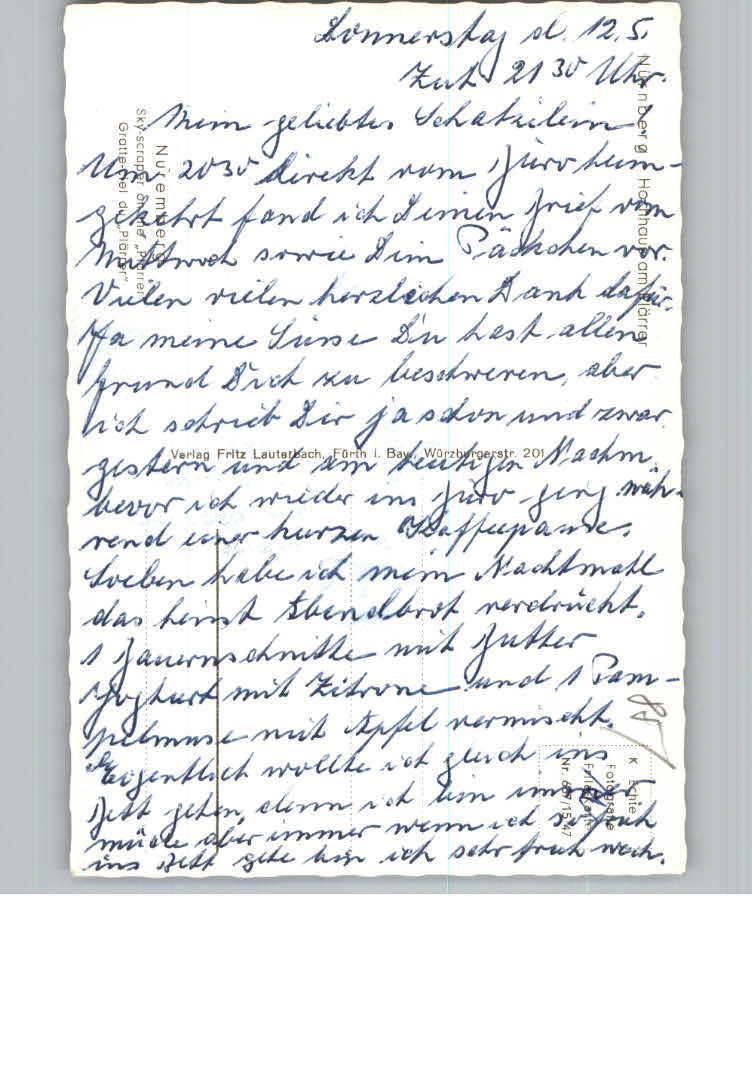 Donnerstag d. 12.5.
Zeit 21 30 Uhr.
Mein geliebtes Schatzilein!
Um 20 30 direkt vom Büro heim-
gekehrt fand ich Deinen Brief vom
Mittwoch sowie Dein Päckchen vor.
Vielen vielen herzlichen Dank dafür.
Ja meine Süsse Du hast allen
Grund Dich zu beschweren, aber
ich schrieb Dir ja schon und zwar
gestern und am heutigen Nachm.
bevor ich wieder ins Büro ging wäh-
rend einer kurzen Kaffeepause.
Soeben habe ich mein Nachtmahl
das heisst Abendbrot verdrückt,
1 Bauernschnitte mit Butter
1 Joghurt mit Zitrone und 1 Pam-
pelmuse mit Apfel vermischt.
eigentlich wollte ich gleich ins
Bett gehen, denn ich bin immer
müde aber immer wenn ich so früh
ins Bett gehe bin ich sehr früh wach.
Nürnberg Hochhaus am Plärrer
Nuremberg
Sky-scraper on the „Plärrer"
Gratte-ciel du „Plärrer"
Verlag Fritz Lauterbach, Fürth i. Bay., Würzburgerstr. 201
K Echte
Fotografie
Nr. 687/1547